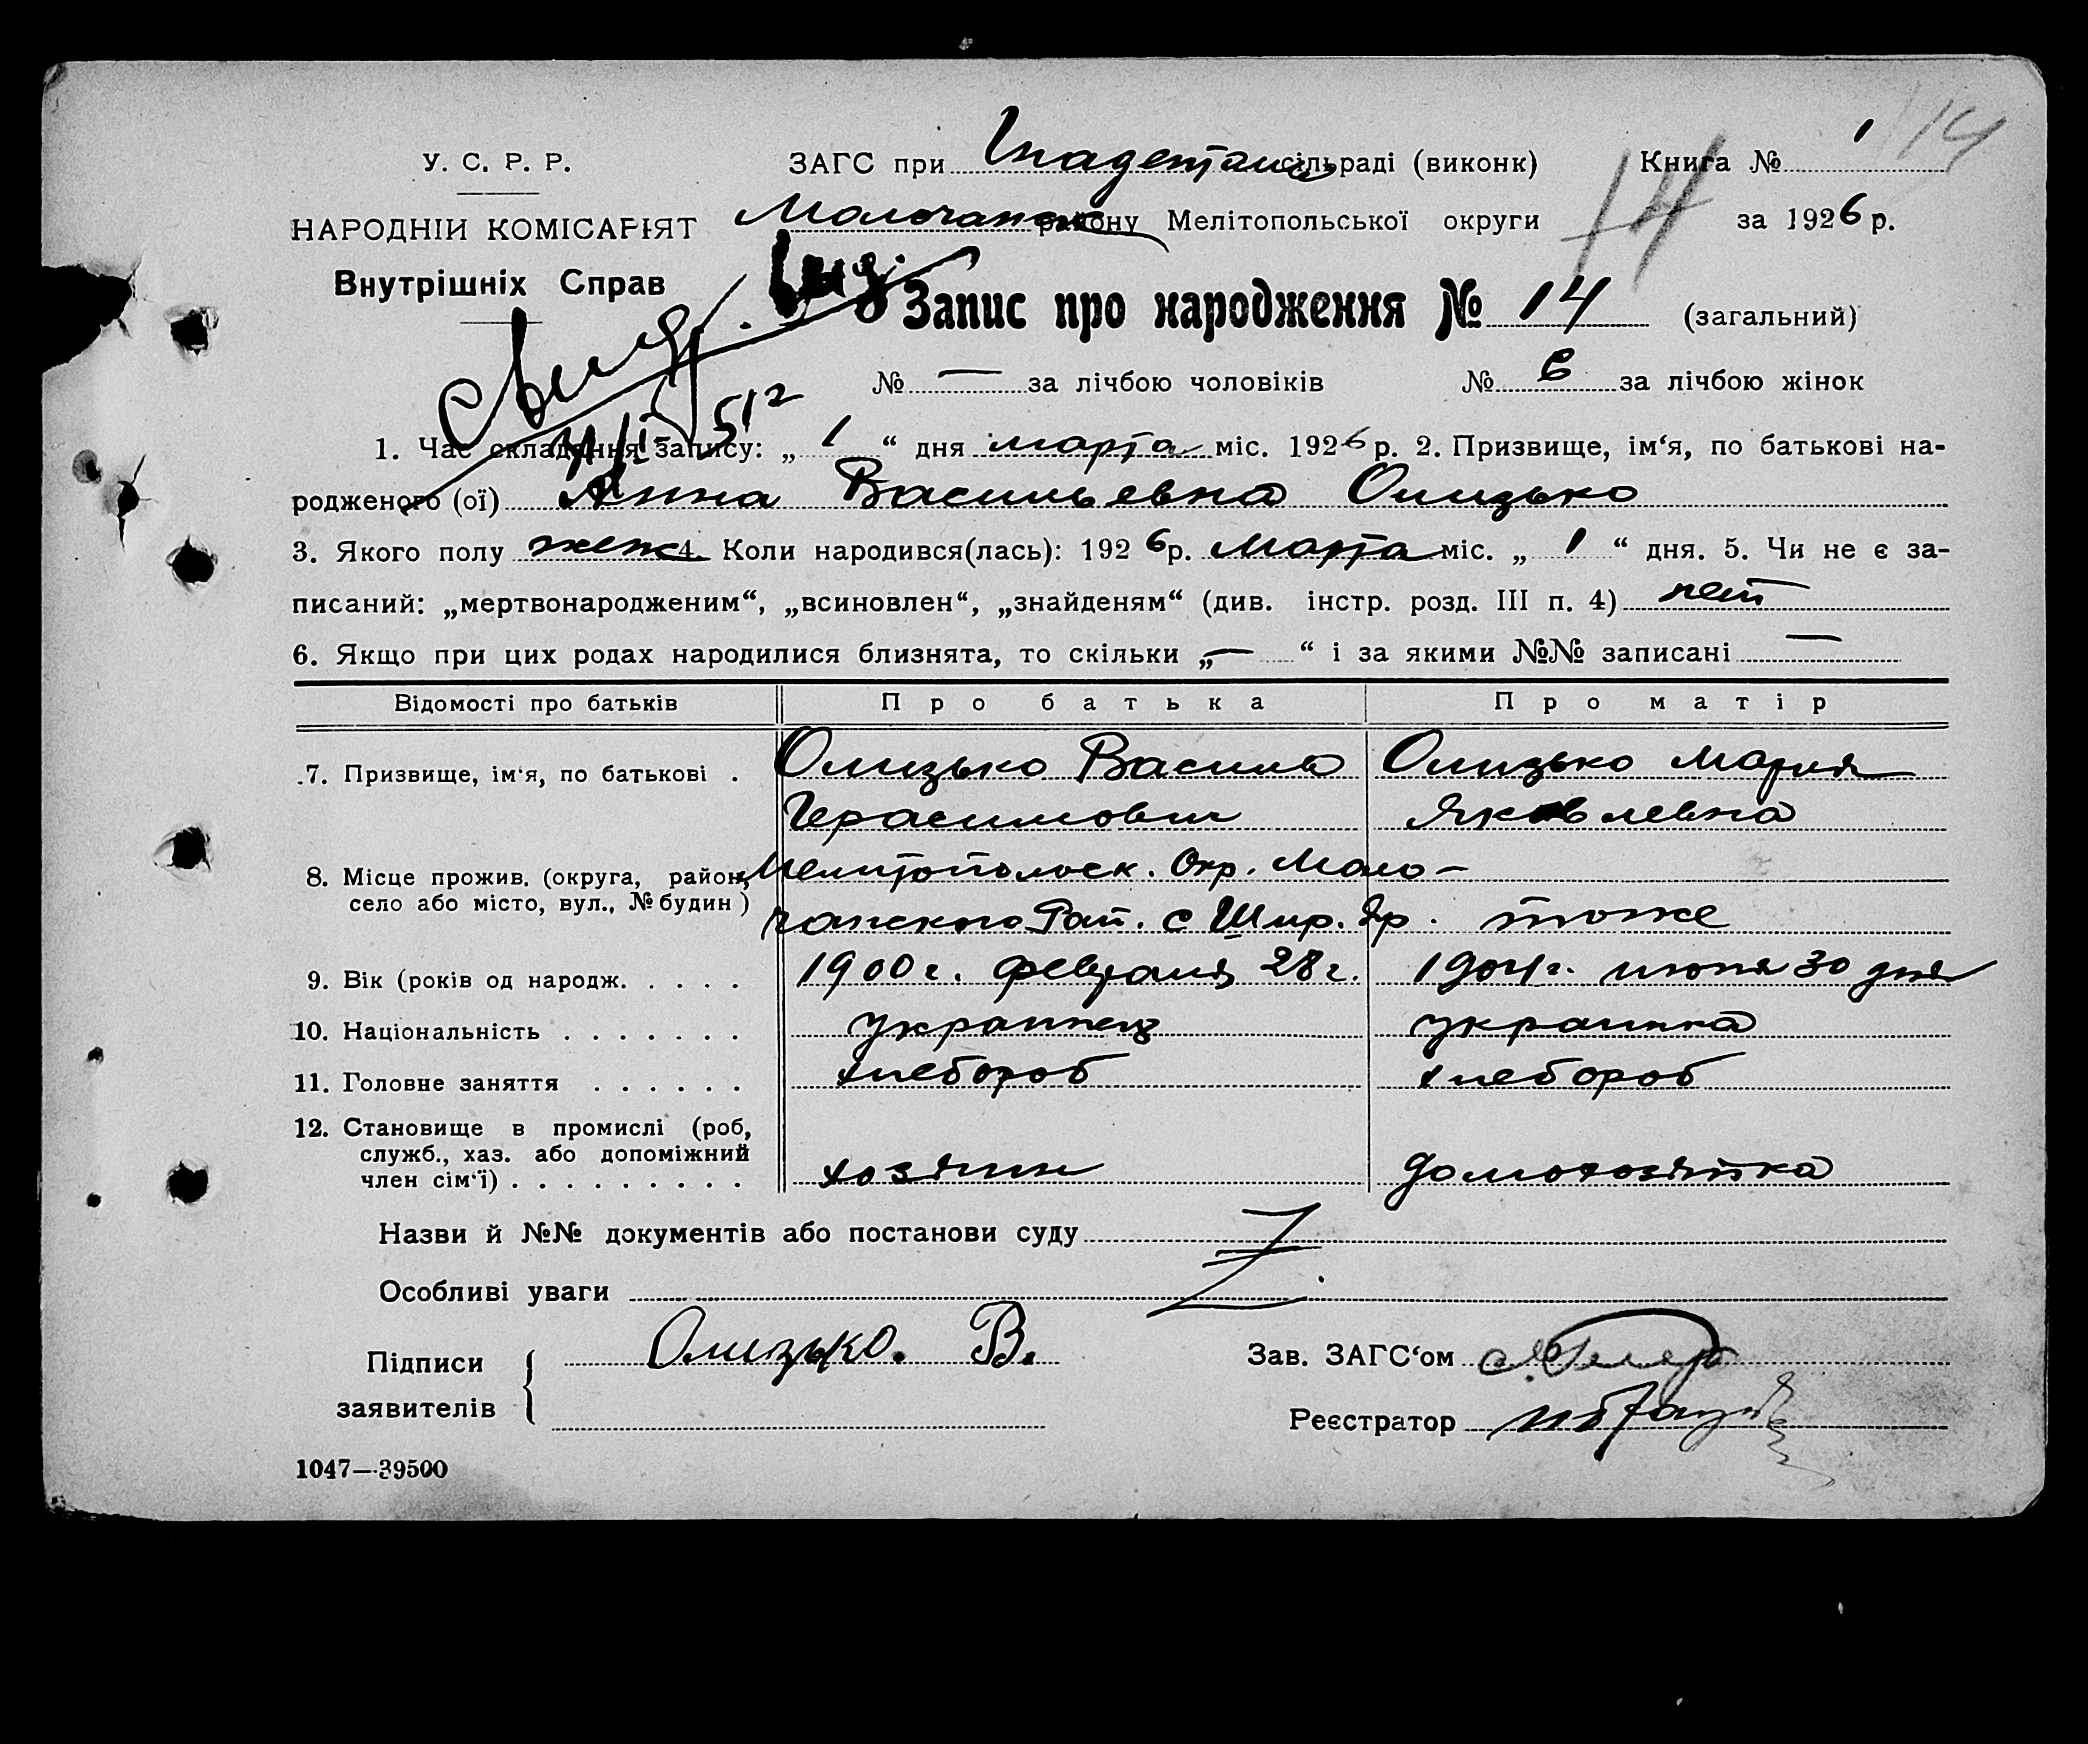 14
У. С. Р. Р.
ЗАГС при сільраді (виконк) Книга № 1
14
НАРОДНІЙ КОМІСАРІЯТ
Молочанск району Мелітопольської округи за 1926 р.
Внутрішніх Справ
Запис про народження № 14 (загальний)
№ — за лічбою чоловіків № 6 за лічбою жінок
51 г
1. Час складання запису: „ 1 “ дня марта міс. 1926 р. 2. Призвище, ім‘я, по батькові на-
родженого (ої) Анна Васильевна Олизько
3. Якого полу женск 4. Коли народився(лась): 1926 р. Марта міс. „ 1 “ дня. 5. Чи не є за-
писаний: „мертвонародженим“, „всиновлен“, „знайденям“ (див. інстр. розд. III п. 4) нет
6. Якщо при цих родах народилися близнята, то скільки „ — “ і за якими №№ записані —
Відомості про батьків Про батька Про матір
7. Призвище, ім‘я, по батькові . Олизько Василь Олизько Мария
Герасимович Яковлевна
8. Місце прожив. (округа, район, Мелитопольск. Окр. Моло-
село або місто, вул., № будин ) чанского Рай. с Шир. Яр. тоже
9. Вік (років од народж. . . . . 1900 г. февраля 28 г. 1904 г. июня 30 дня
10. Національність . . . . . . . украинец украинка
11. Головне заняття . . . . . . хлебороб хлебороб
12. Становище в промислі (роб,
служб., хаз. або допоміжний
член сім‘ї) . . . . . . . . . хозяин домохозяйка
Назви й №№ документів або постанови суду
Особливі уваги
Підписи Олизько. В. Зав. ЗАГС‘ом
заявителів Реєстратор
1047—39500